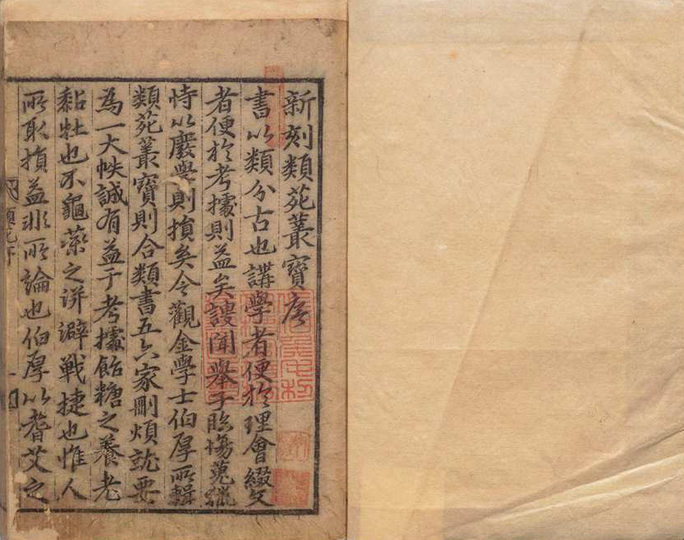 新刻類苑叢寶序
書以類分古也講學者便於理會綴文
者便於考據則益矣謏聞舉子臨場蒐獵
恃以廢學則損矣今觀金學士伯厚所輯
類苑叢寶則合類書五六家刪煩就要
為一大帙誠有益于考據飴糖之養老
黏牡也不龜藥之洴澼戰捷也惟人
所取損益非所論也伯厚以耆艾之
類苑序